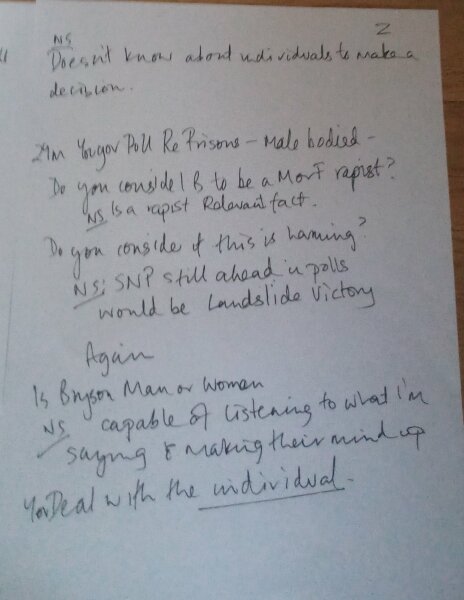 2
NS
Doesn't know about individuals to make a
decision.
Yougov Poll Re Prisons - Male bodied -
Do you conside IB to be a M or F rapist?
NS Is a rapist Relevant fact.
Do you conside if this is harming?
NS: SNP still ahead in polls
would be Landslide Victory
Again
Is Bryson Man or Women
NS capable of listening to what I'm
saying & making their mind up
You Deal with the individual.